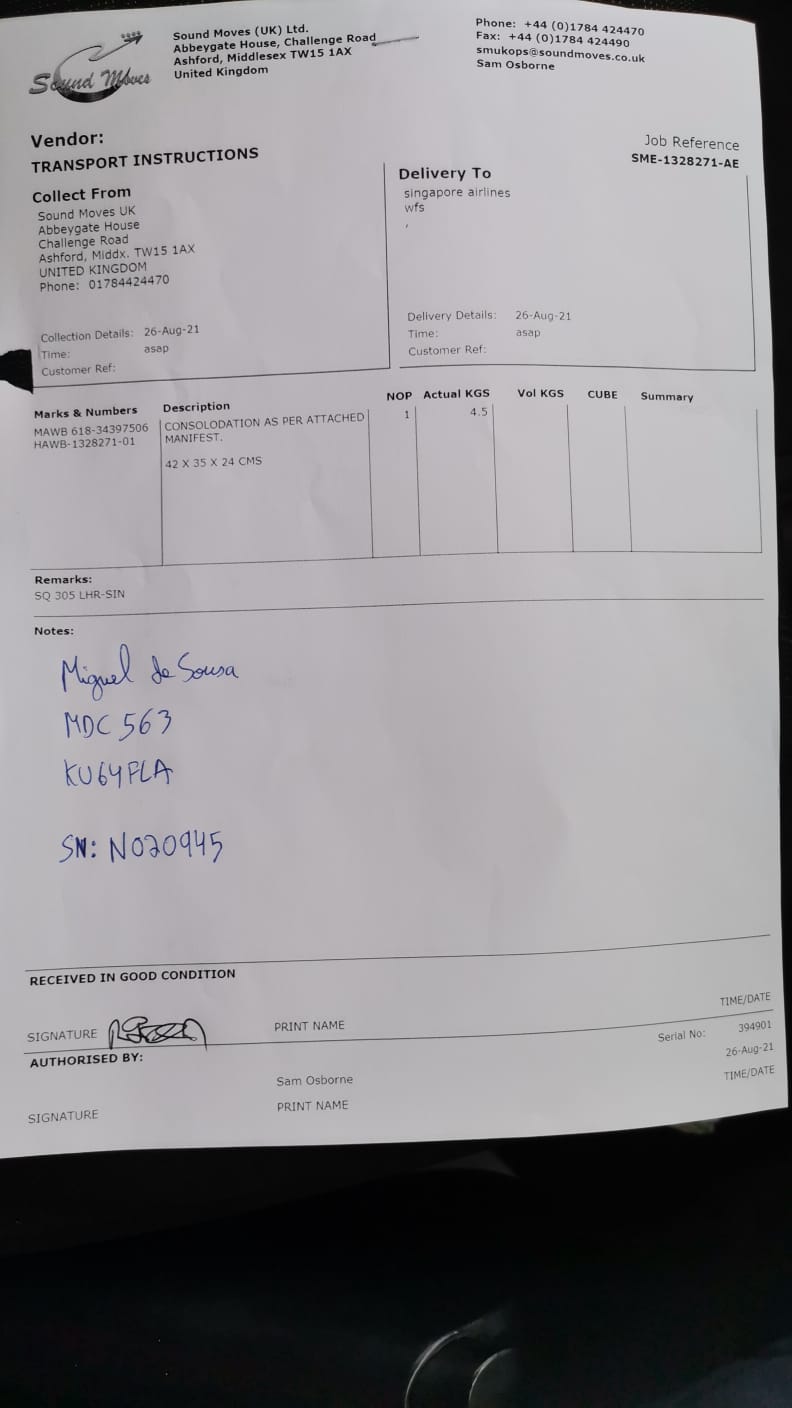 Sound Moves
Sound Moves (UK) Ltd.
Abbeygate House, Challenge Road
Ashford, Middlesex TW15 1AX
United Kingdom
Phone: +44 (0)1784 424470
Fax: +44 (0)1784 424490
smukops@soundmoves.co.uk
Sam Osborne
Vendor:
TRANSPORT INSTRUCTIONS
Job Reference
SME-1328271-AE
Collect From
Sound Moves UK
Abbeygate House
Challenge Road
Ashford, Middx. TW15 1AX
UNITED KINGDOM
Phone: 01784424470
Collection Details: 26-Aug-21
Time: asap
Customer Ref:
Delivery To
singapore airlines
wfs
,
Delivery Details: 26-Aug-21
Time: asap
Customer Ref:
Marks & Numbers Description NOP Actual KGS Vol KGS CUBE Summary
MAWB 618-34397506 CONSOLODATION AS PER ATTACHED 1 4.5
HAWB-1328271-01 MANIFEST.
42 X 35 X 24 CMS
Remarks:
SQ 305 LHR-SIN
Notes:
Miguel de Sousa
MDC 563
KU64FLA
SN: N020945
RECEIVED IN GOOD CONDITION
SIGNATURE PRINT NAME TIME/DATE
AUTHORISED BY: Serial No: 394901
Sam Osborne 26-Aug-21
SIGNATURE PRINT NAME TIME/DATE